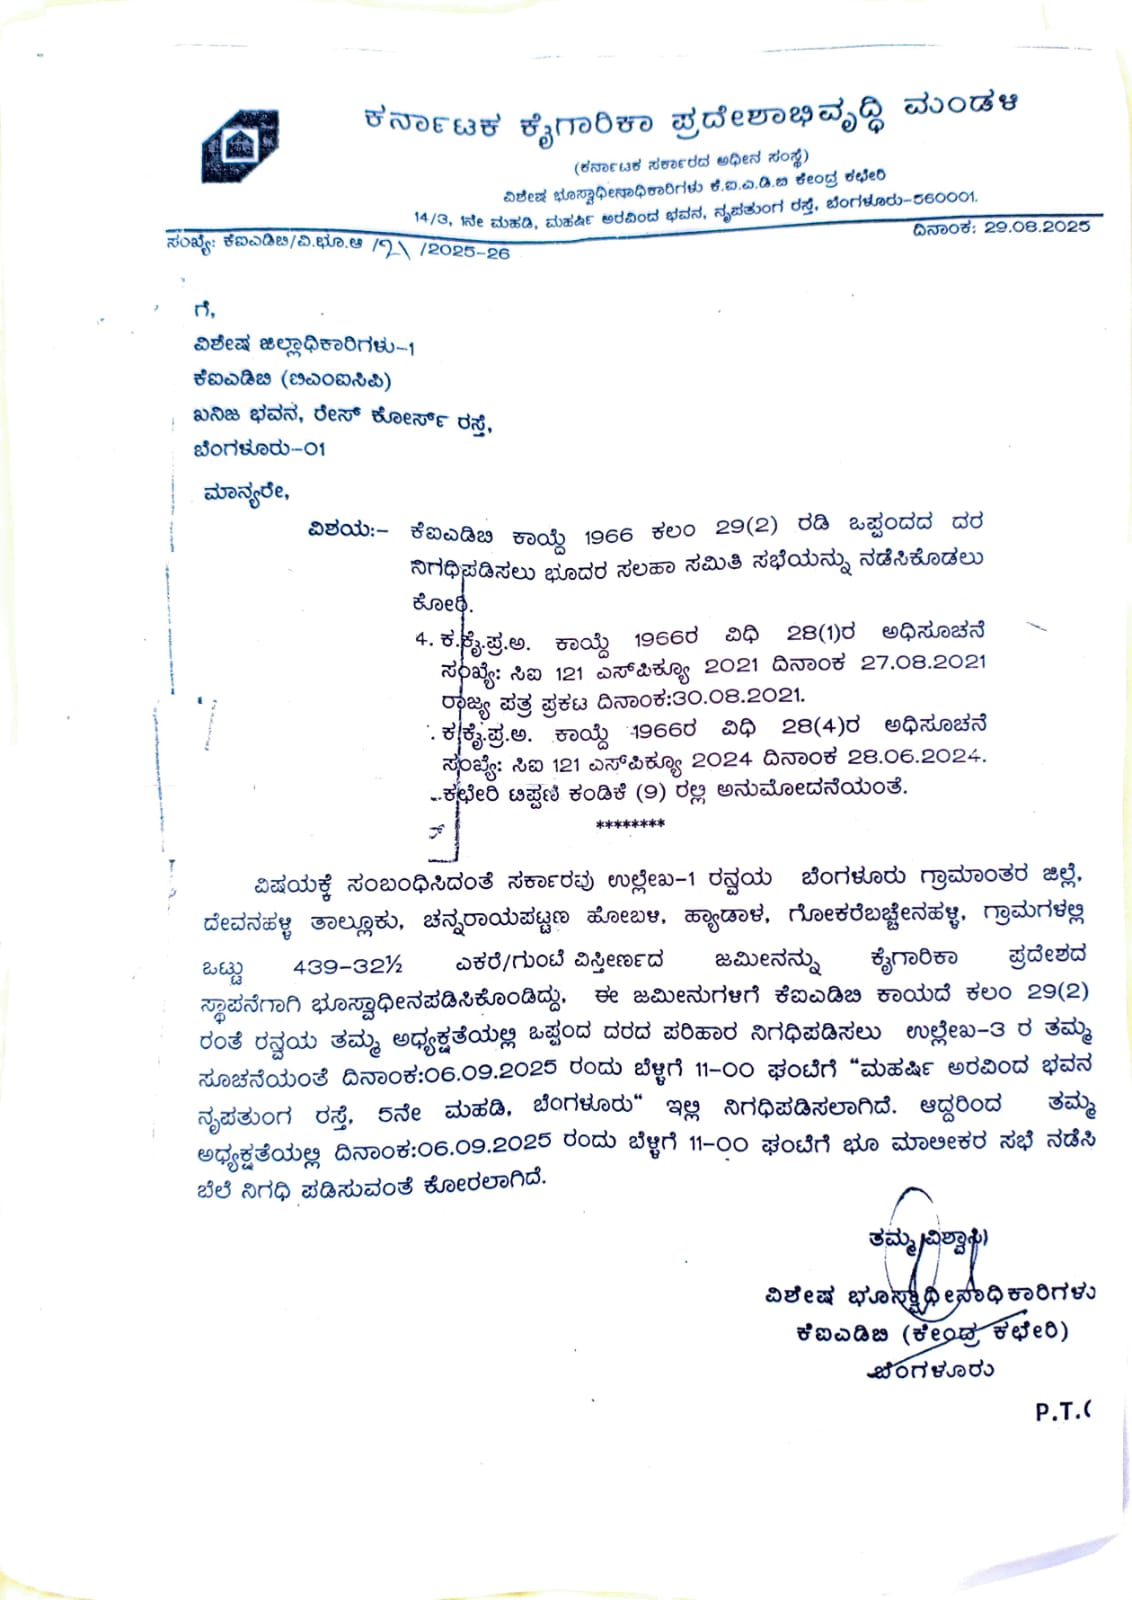 ಕರ್ನಾಟಕ ಕೈಗಾರಿಕಾ ಪ್ರದೇಶಾಭಿವೃದ್ಧಿ ಮಂಡಳಿ
(ಕರ್ನಾಟಕ ಸರ್ಕಾರದ ಅಧೀನ ಸಂಸ್ಥೆ)
ವಿಶೇಷ ಭೂಸ್ವಾಧೀನಾಧಿಕಾರಿಗಳು ಕೆ.ಐ.ಎ.ಡಿ.ಬಿ ಕೇಂದ್ರ ಕಛೇರಿ
14/3, 1ನೇ ಮಹಡಿ, ಮಹರ್ಷಿ ಅರವಿಂದ ಭವನ, ನೃಪತುಂಗ ರಸ್ತೆ, ಬೆಂಗಳೂರು-560001.
ಸಂಖ್ಯೆ: ಕೆಐಎಡಿಬಿ/ವಿ.ಭೂ.ಆ / /2025-26
ದಿನಾಂಕ: 29.08.2025
ಗೆ,
ವಿಶೇಷ ಜಿಲ್ಲಾಧಿಕಾರಿಗಳು-1
ಕೆಐಎಡಿಬಿ (ಬಿಎಂಐಸಿಪಿ)
ಖನಿಜ ಭವನ, ರೇಸ್ ಕೋರ್ಸ್ ರಸ್ತೆ,
ಬೆಂಗಳೂರು-01
ಮಾನ್ಯರೇ,
ವಿಶಯ:- ಕೆಐಎಡಿಬಿ ಕಾಯ್ದೆ 1966 ಕಲಂ 29(2) ರಡಿ ಒಪ್ಪಂದದ ದರ
ನಿಗಧಿಪಡಿಸಲು ಭೂದರ ಸಲಹಾ ಸಮಿತಿ ಸಭೆಯನ್ನು ನಡೆಸಿಕೊಡಲು
ಕೋರಿ.
4. ಕ.ಕೈ.ಪ್ರ.ಅ. ಕಾಯ್ದೆ 1966ರ ವಿಧಿ 28(1)ರ ಅಧಿಸೂಚನೆ
ಸಂಖ್ಯೆ: ಸಿಐ 121 ಎಸ್‌ಪಿಕ್ಯೂ 2021 ದಿನಾಂಕ 27.08.2021
ರಾಜ್ಯ ಪತ್ರ ಪ್ರಕಟ ದಿನಾಂಕ:30.08.2021.
. ಕ.ಕೈ.ಪ್ರ.ಅ. ಕಾಯ್ದೆ 1966ರ ವಿಧಿ 28(4)ರ ಅಧಿಸೂಚನೆ
ಸಂಖ್ಯೆ: ಸಿಐ 121 ಎಸ್‌ಪಿಕ್ಯೂ 2024 ದಿನಾಂಕ 28.06.2024.
ಕಛೇರಿ ಟಿಪ್ಪಣಿ ಕಂಡಿಕೆ (9) ರಲ್ಲಿ ಅನುಮೋದನೆಯಂತೆ.
********
ವಿಷಯಕ್ಕೆ ಸಂಬಂಧಿಸಿದಂತೆ ಸರ್ಕಾರವು ಉಲ್ಲೇಖ-1 ರನ್ವಯ ಬೆಂಗಳೂರು ಗ್ರಾಮಾಂತರ ಜಿಲ್ಲೆ,
ದೇವನಹಳ್ಳಿ ತಾಲ್ಲೂಕು, ಚನ್ನರಾಯಪಟ್ಟಣ ಹೋಬಳಿ, ಹ್ಯಾಡಾಳ, ಗೋಕರೆಬಚ್ಚೇನಹಳ್ಳಿ, ಗ್ರಾಮಗಳಲ್ಲಿ
ಒಟ್ಟು 439-32½ ಎಕರೆ/ಗುಂಟೆ ವಿಸ್ತೀರ್ಣದ ಜಮೀನನ್ನು ಕೈಗಾರಿಕಾ ಪ್ರದೇಶದ
ಸ್ಥಾಪನೆಗಾಗಿ ಭೂಸ್ವಾಧೀನಪಡಿಸಿಕೊಂಡಿದ್ದು, ಈ ಜಮೀನುಗಳಿಗೆ ಕೆಐಎಡಿಬಿ ಕಾಯದೆ ಕಲಂ 29(2)
ರಂತೆ ರನ್ವಯ ತಮ್ಮ ಅಧ್ಯಕ್ಷತೆಯಲ್ಲಿ ಒಪ್ಪಂದ ದರದ ಪರಿಹಾರ ನಿಗಧಿಪಡಿಸಲು ಉಲ್ಲೇಖ-3 ರ ತಮ್ಮ
ಸೂಚನೆಯಂತೆ ದಿನಾಂಕ:06.09.2025 ರಂದು ಬೆಳ್ಳಿಗೆ 11-00 ಘಂಟೆಗೆ "ಮಹರ್ಷಿ ಅರವಿಂದ ಭವನ
ನೃಪತುಂಗ ರಸ್ತೆ, 5ನೇ ಮಹಡಿ, ಬೆಂಗಳೂರು" ಇಲ್ಲಿ ನಿಗಧಿಪಡಿಸಲಾಗಿದೆ. ಆದ್ದರಿಂದ ತಮ್ಮ
ಅಧ್ಯಕ್ಷತೆಯಲ್ಲಿ ದಿನಾಂಕ:06.09.2025 ರಂದು ಬೆಳ್ಳಿಗೆ 11-00 ಘಂಟೆಗೆ ಭೂ ಮಾಲೀಕರ ಸಭೆ ನಡೆಸಿ
ಬೆಲೆ ನಿಗಧಿ ಪಡಿಸುವಂತೆ ಕೋರಲಾಗಿದೆ.
ತಮ್ಮ ವಿಶ್ವಾಸಿ
ವಿಶೇಷ ಭೂಸ್ವಾಧೀನಾಧಿಕಾರಿಗಳು
ಕೆಐಎಡಿಬಿ (ಕೇಂದ್ರ ಕಛೇರಿ)
ಬೆಂಗಳೂರು
P.T.